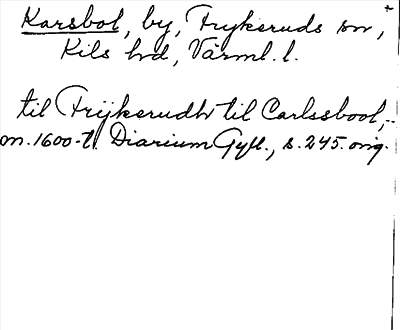 Karsbol, by, Frykeruds sn,
Kils hd, Värml. l.
til Frijkerudh til Carlssbool,
m. 1600-t. Diarium Gyll., s. 245. orig.